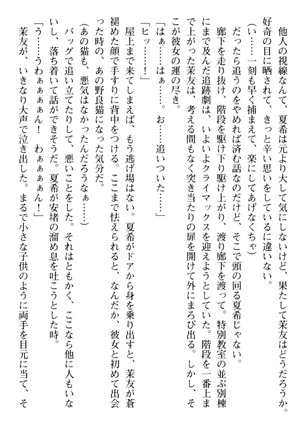 他人の視線なんて、夏希は元より大して気にしないけど、果たして茉友はどうだろうか。
好奇の目に晒されて、きっと辛い思いをしているに違いない。
（……一刻も早く捕まえて、楽にしてあげなくちゃ）
　だったら追うのをやめれば済む話なのだけど、そこで頭の回る夏希じゃない。
　廊下を走り抜け、階段を駆け下り駆け上がり、渡り廊下を渡って。特別教室の並ぶ別棟
にまで及んだ追跡劇は、いよいよクライマックスを迎えようとしていた。階段を一番上ま
で上がった茉友は、考える間もなく突き当たりの扉を開けて外にまろび出る。しかし、そ
こが彼女の運の尽き。
「はぁ……はぁ……。お……追いついた……」
「ヒッ……！」
　屋上まで来てしまえば、もう逃げ場はない。夏希がドアから身を乗り出すと、茉友が蒼
褪めた顔で手すりに背中をつける。ここまで怯えられると、なんだか、彼女と初めて出会
った時の、あの野良猫になった気分だ。
（あの猫も、悪気はなかったんだろうなぁ……）
　バッグで追い立てたりして、悪いことをした。それはともかく、ここなら他に人もいな
い。落ち着いて話ができそうだ。夏希が安堵の溜め息を吐こうとした時。
「う……うわぁぁぁぁん！　わぁぁぁぁん！」
　茉友が、いきなり大声で泣き出した。まるで小さな子供のように両手を目元に当て、そ